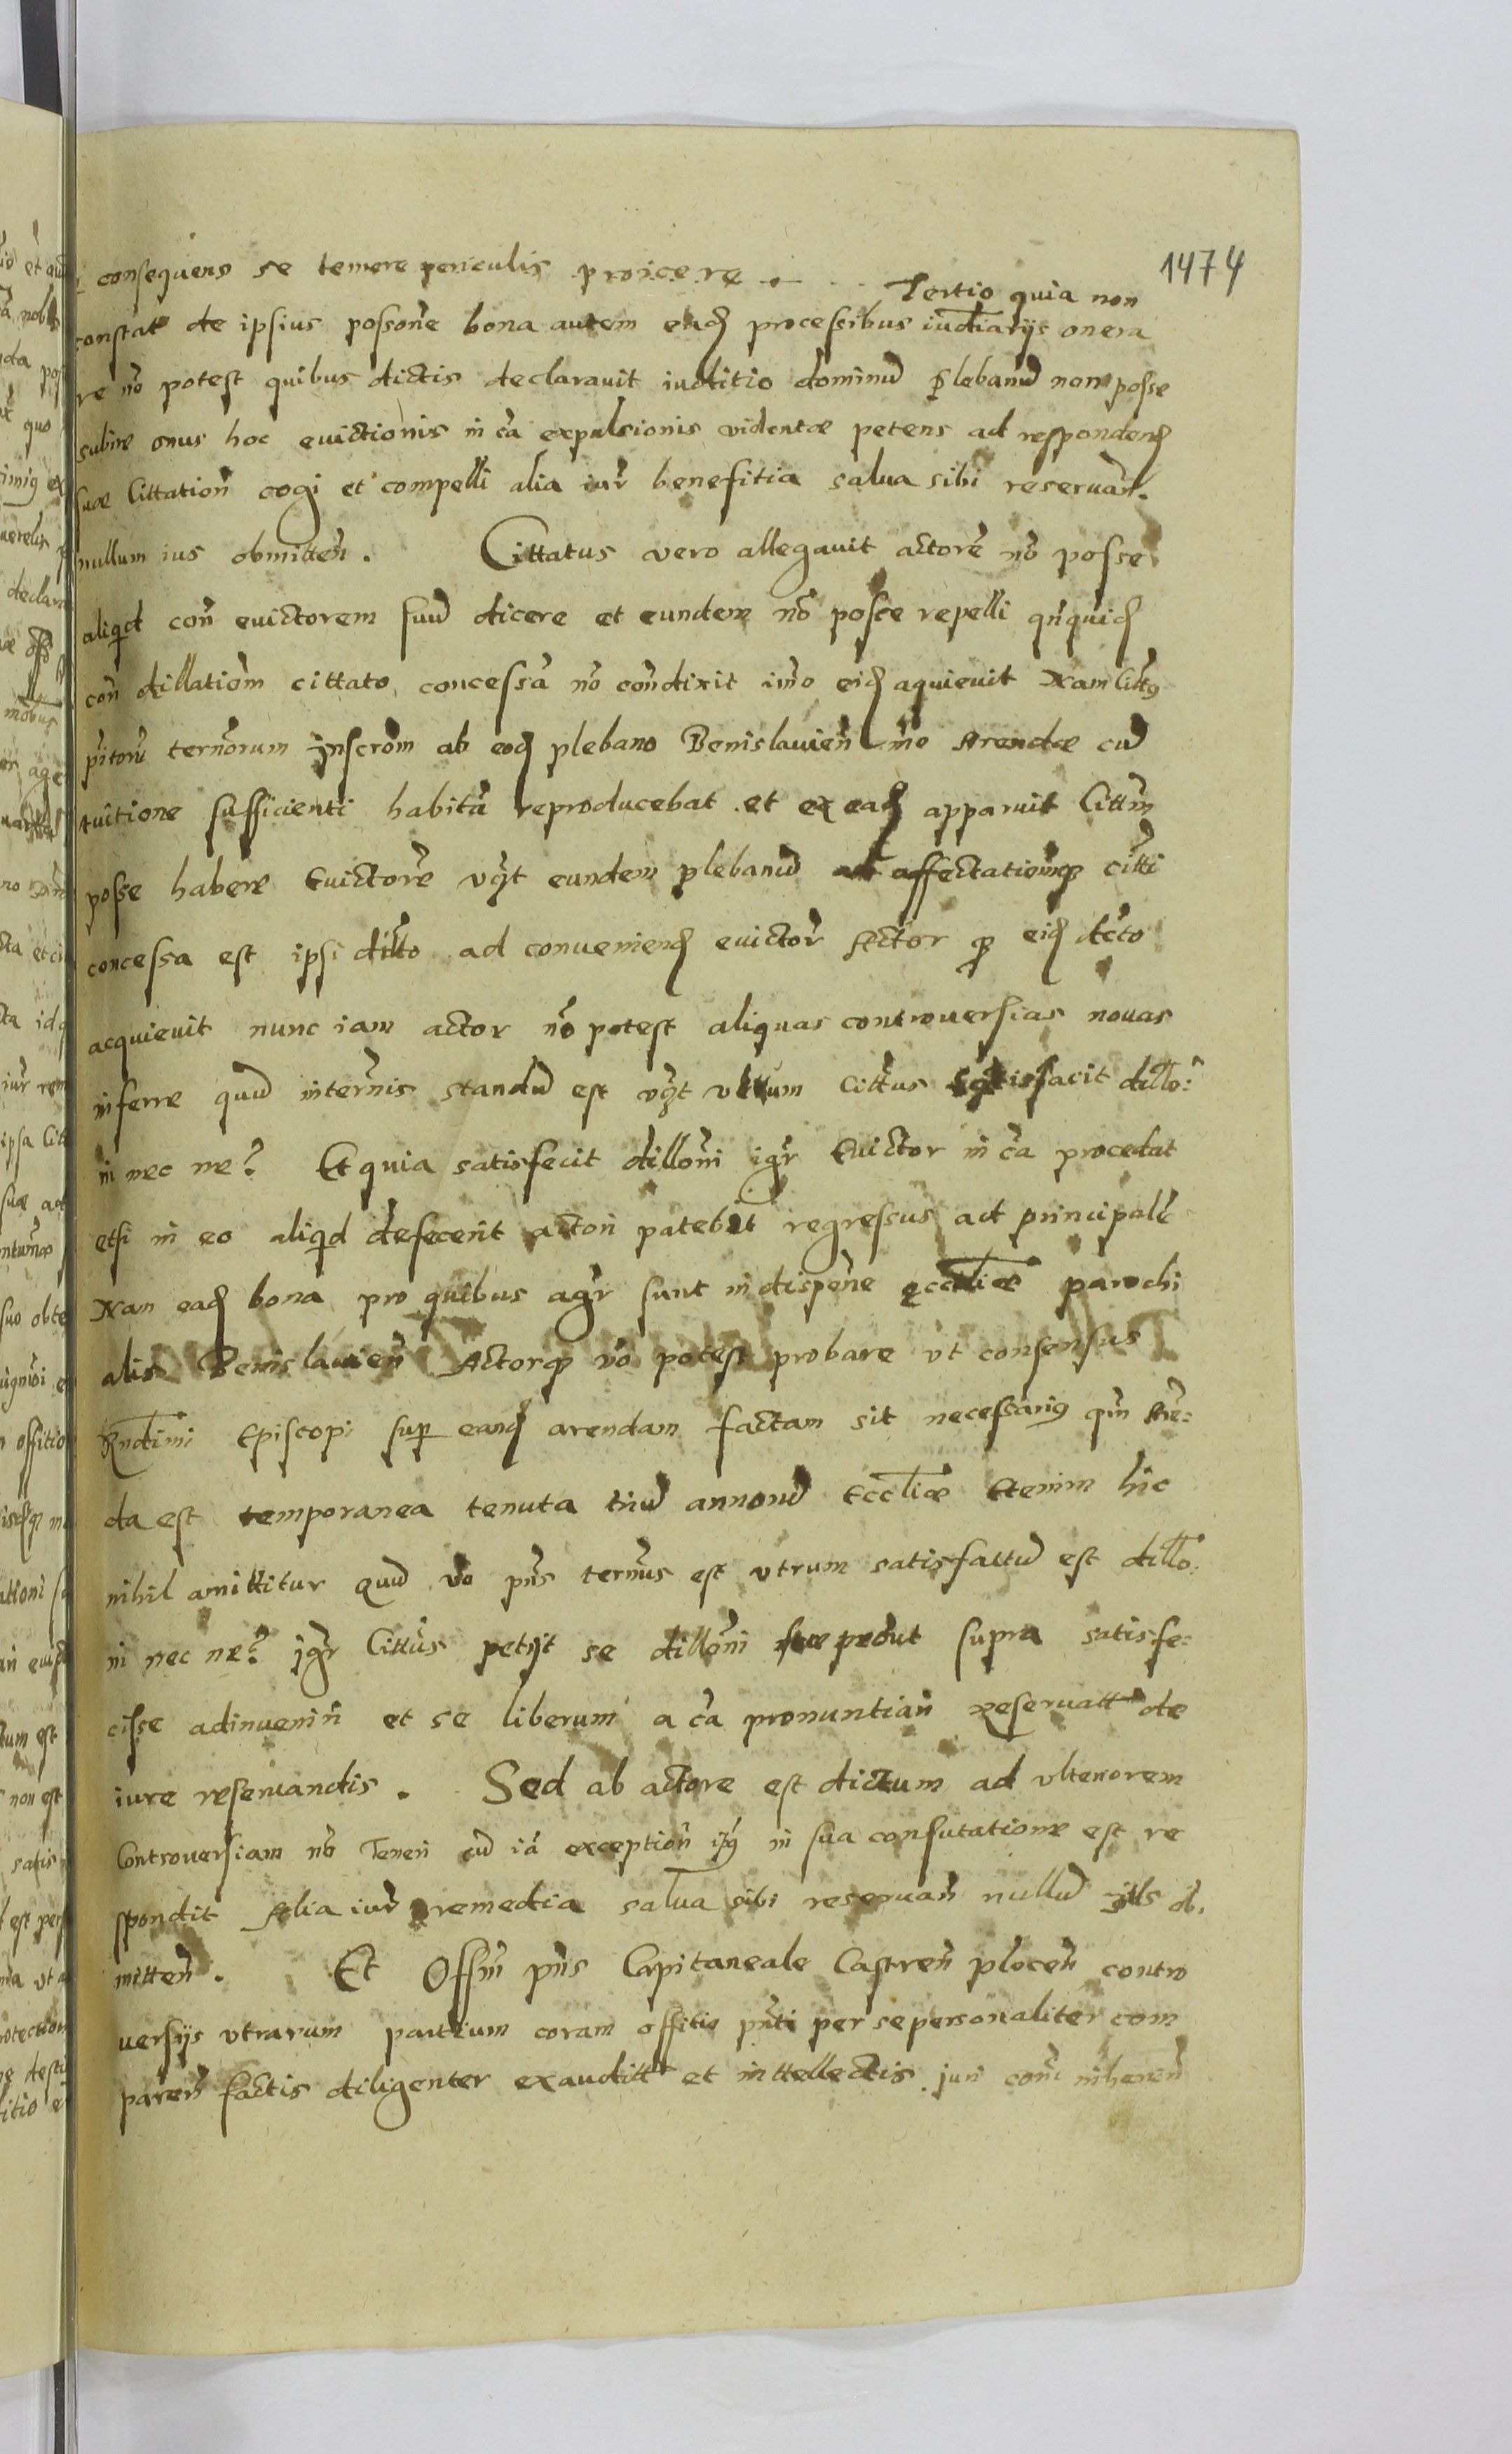 1474
consequens se temere periculis proicere . Tertio quia non
constat de ipsius possone bona autem eadē processibus iudiarijs onera
re nō potest quibus dictis declarauit iuditio dominū Plebanū non posse
subire onus hoc euictionis in cā expulsionis videntæ petens ad respondenđ
suæ Cittatioñ cogi et compelli alia iur̃ benefitia salua sibi reseruañ.
nullum ius obmitteñ. Cittatus vero allegauit actorē nō posse
aliqd coñ euictorem suū dicere et eundem nō posse repelli
coñ dillatiom̃ cittato concessā nō coñdixit imo eiđ aquieuit Nam
ternorum Inscrom ab eođ plebano Benislauieñ Arendæ cū
tuitione sufficienti habitā reproducebat et ex eađ apparuit Cittm̃
posse habere Euictorē eundem plebanū affectationēq citti
concessa est ipsi ad conueniendđ euictor̃ Actor eiđ
acquieuit nunc iam actor nō potest aliquas controuersias nouas
inferre quū interm̃is standū est Cittus satisfacit dillo:
ni nec ne? Et quia satisfecit dilloni igr̃ Euictor in cā procedat
etsi in eo aliqd defecerit actori patebit regressus ad principalē
Nam eađ bona pro quibus agr̃ sunt in dispone ecclliæ parochi
alis Benislauieñ Actorq nō potest probare vt consensus
Rndimi Episcopi sup eanđ arendam factam sit necessarius qm̃ Are:
da est temporanea tenuta triū annorū Eccliæ Etenim hic
nihil amittitur quū vō pn̄s termus est vtrum satisfactū est dillo:
ni nec ne? Igr̃ Cittus petijt se dilloni suæ prout supra satisfe:
cisse adinueniri et se liberum a cā pronuntiari reseruatt de
iure reseruandis. Sed ab actore est dictum ad vlteriorem
Controuersiam nō Teneri cū iā exceptioñ in sua confutatione est re
spondit Alia iur̃ remedia salua sibi reseruañ nullū ius ob.
mitteñ. Et Offm̃ pn̄s Capitaneale Castreñ ploceñ contro
uersijs vtrarum partium coram offitio pn̄ti per se personaliter com
pareñ factis diligenter exauditt et inttellectis juri coñi inhæreñ